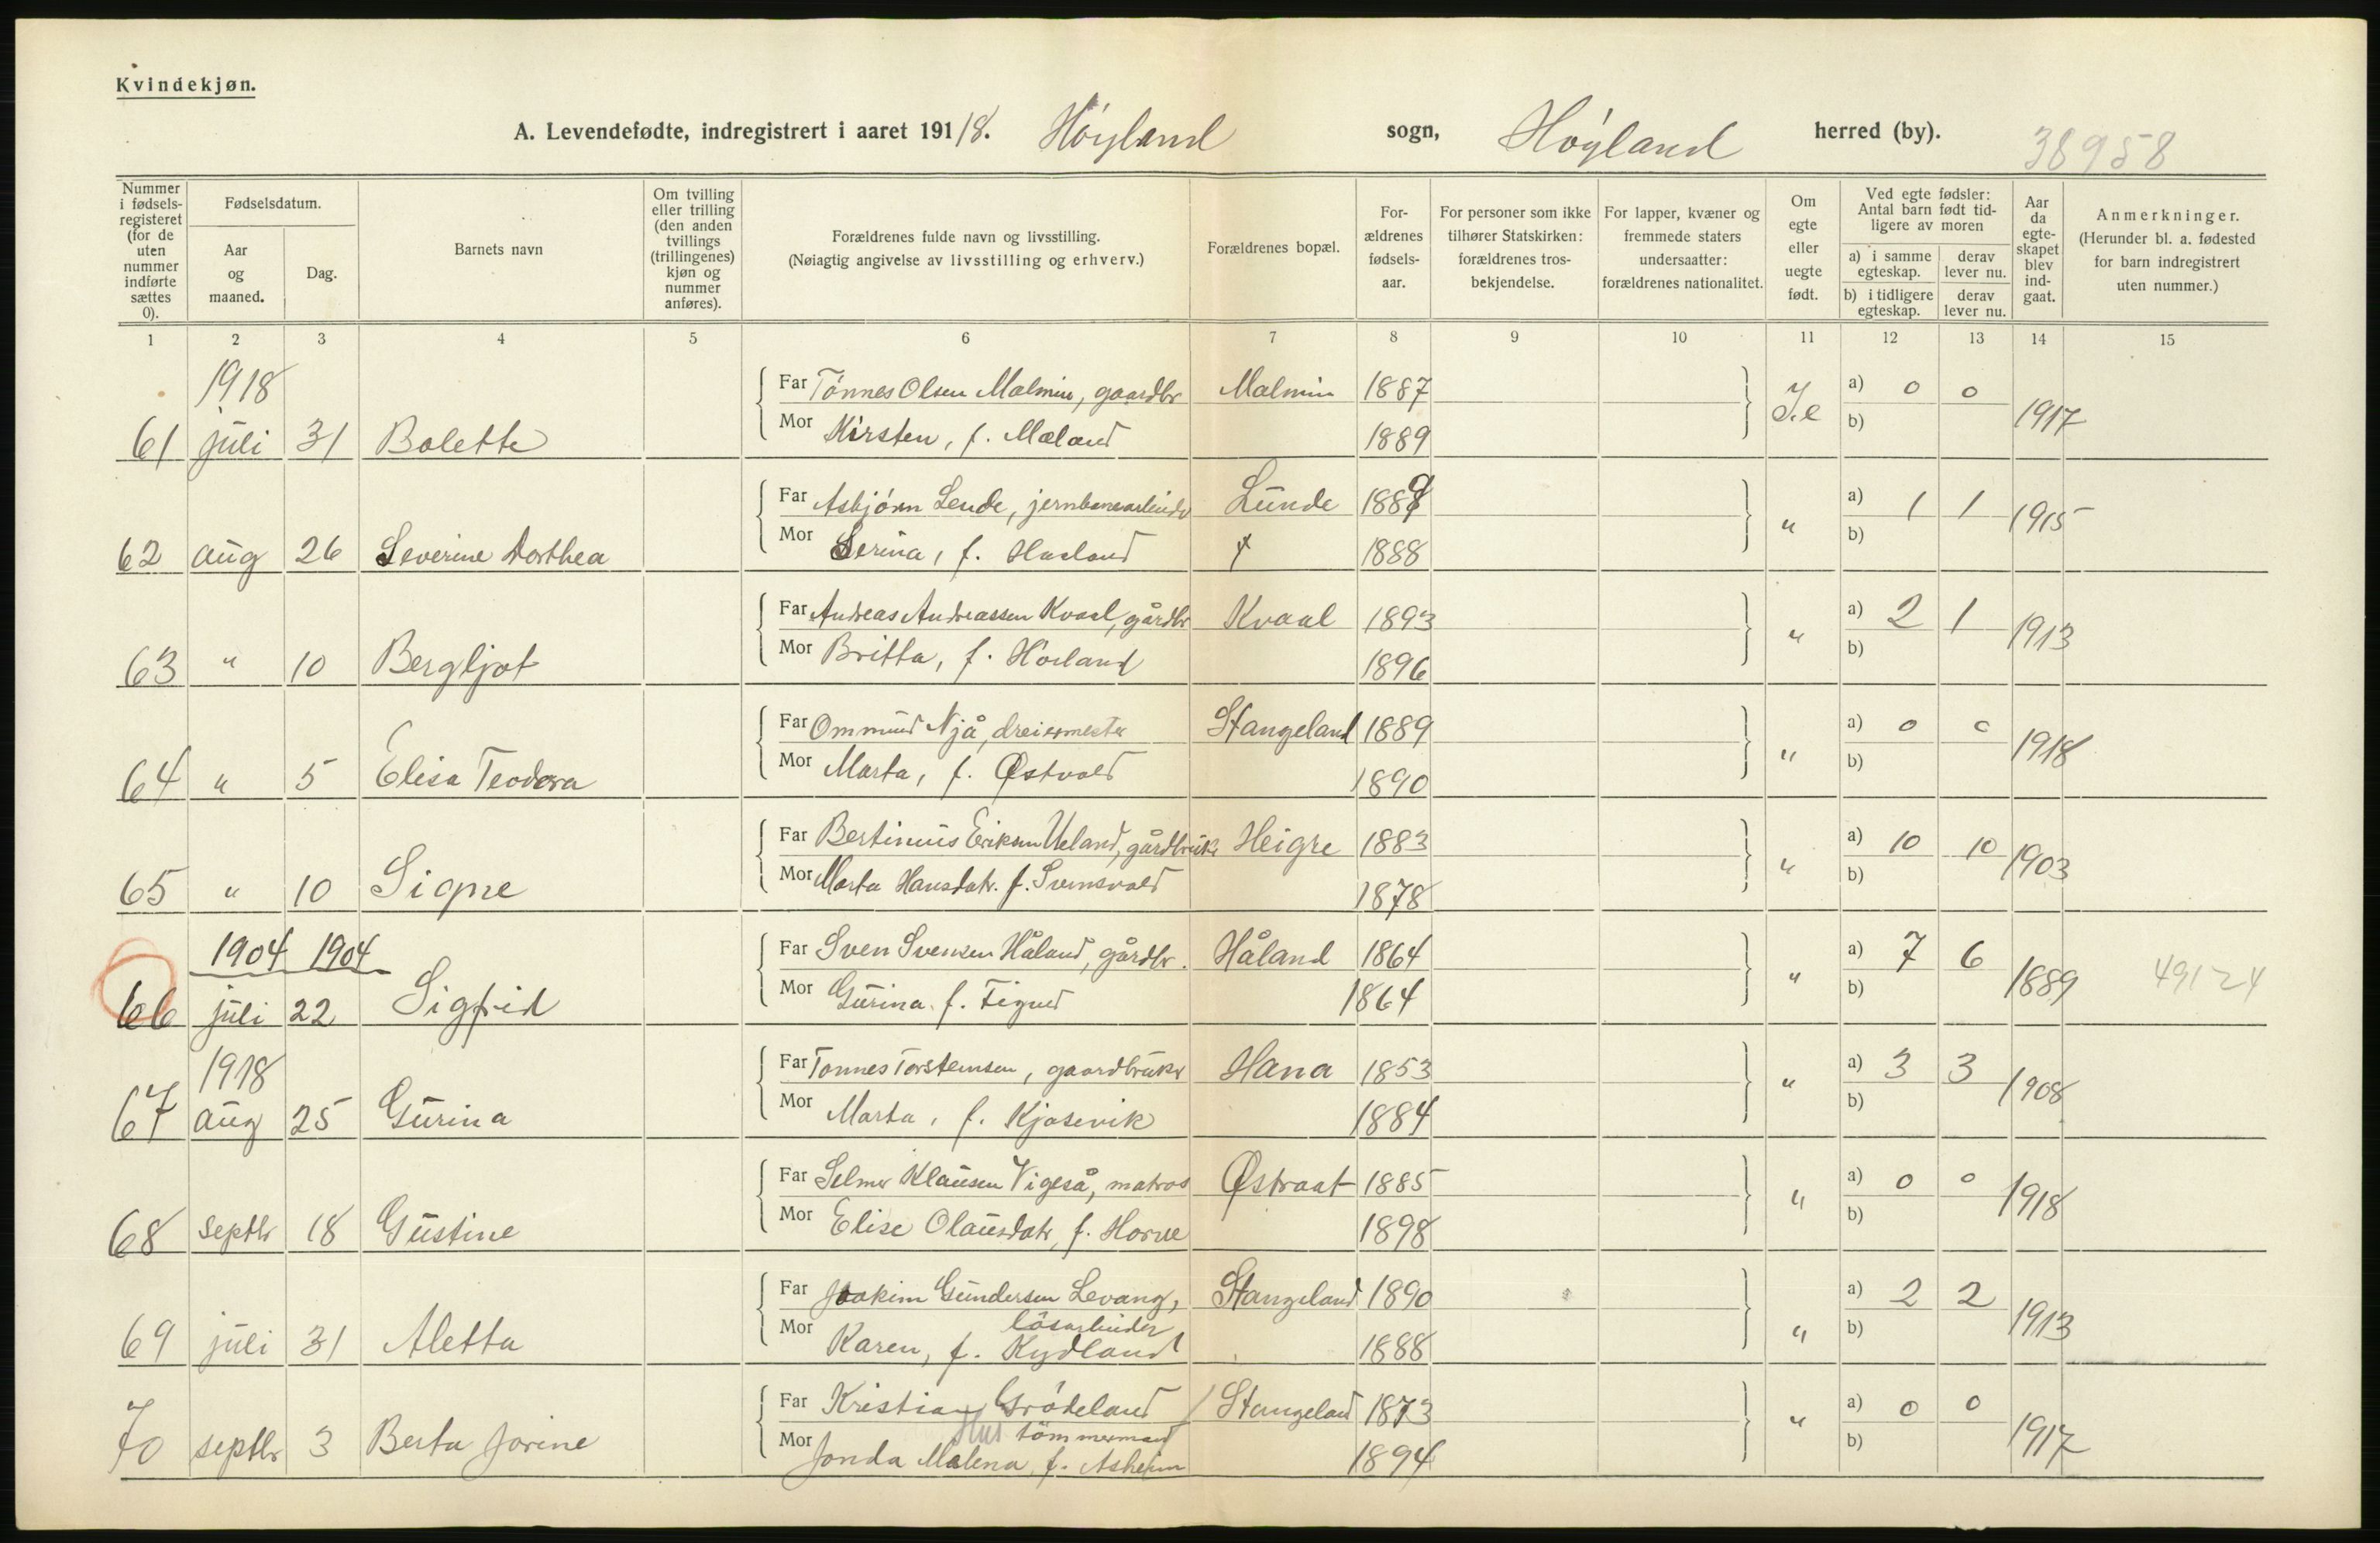 Kvindekjøn.
A. Levendefødte, indregistrert i aaret 1918. Höyland sogn, Höyland herred (by). 38958
Nummer i fødsels-registeret (for de uten nummer indførte sættes 0).
Fødselsdatum.
Aar og maaned.
Dag.
Barnets navn
Om tvilling eller trilling (den anden tvillings (trillingenes) kjøn og nummer anføres).
Forældrenes fulde navn og livsstilling.
(Nøiagtig angivelse av livsstilling og erhverv.)
Forældrenes bopæl.
For-ældrenes fødsels-aar.
For personer som ikke tilhører Statskirken: forældrenes tros-bekjendelse.
For lapper, kvæner og fremmede staters undersaatter: forældrenes nationalitet.
Om egte eller uegte født.
Ved egte fødsler: Antal barn født tid-ligere av moren
a) i samme egteskap. derav lever nu.
b) i tidligere egteskap. derav lever nu.
Aar da egte-skapet blev ind-gaat.
Anmerkninger.
(Herunder bl. a. fødested for barn indregistrert uten nummer.)
1 2 3 4 5 6 7 8 9 10 11 12 13 14 15
1918
Far Tönnes Olsen Malmin, gaardbr Malmin 1887 a) 0 0
61 juli 31 Bolette Mor Kirsten, f. Maland 1889 b) 1917
Far Asbjörn Lende, jernbanearbeider Lunde 1889 a) 1 1
62 aug 26 Severine Dorthea Mor Serina, f. Husland 1888 " b) 1915
Far Andreas Andreassen Kvaal, gårdbr Kvaal 1893 a) 2 1
63 " 10 Bergljot Mor Britta, f. Horland 1896 " b) 1913
Far Ommund Njå, dreiermester Stangeland 1889 a) 0 0
64 " 5 Elisa Teodora Mor Marta, f. Østvold 1890 " b) 1918
Far Bertinius Eriksen Ueland, gårdbruk. Heigre 1883 a) 10 10
65 " 10 Signe Mor Marta Hansdatr. f. Svensvold 1878 " b) 1903
1904 1904
Far Sven Svensen Håland, gårdbr. Håland 1864 a) 7 6
66 juli 22 Sigfrid Mor Gurina f. Tigned 1864 " b) 1889 49124
1918
Far Tonnes Torsteinsen, gaardbruker Hana 1853 a) 3 3
67 aug 25 Gurina Mor Marta, f. Kjosevik 1884 " b) 1908
Far Selmer Klausen Vigeså, matros Østraat 1885 a) 0 0
68 septbr 18 Gustine Mor Elise Olausdatr, f. Horve 1898 " b) 1918
Far Joakim Gundersen Levang, Stangeland 1890 a) 2 2
lösarbeider
69 juli 31 Aletta Mor Karen, f. Kydland 1888 " b) 1913
Far Kristian Grödeland Stangeland 1873 a) 0 0
Hus tömmermand
70 septbr 3 Berta Jorine Mor Jonda Malena, f. Asheim 1894 " b) 1917